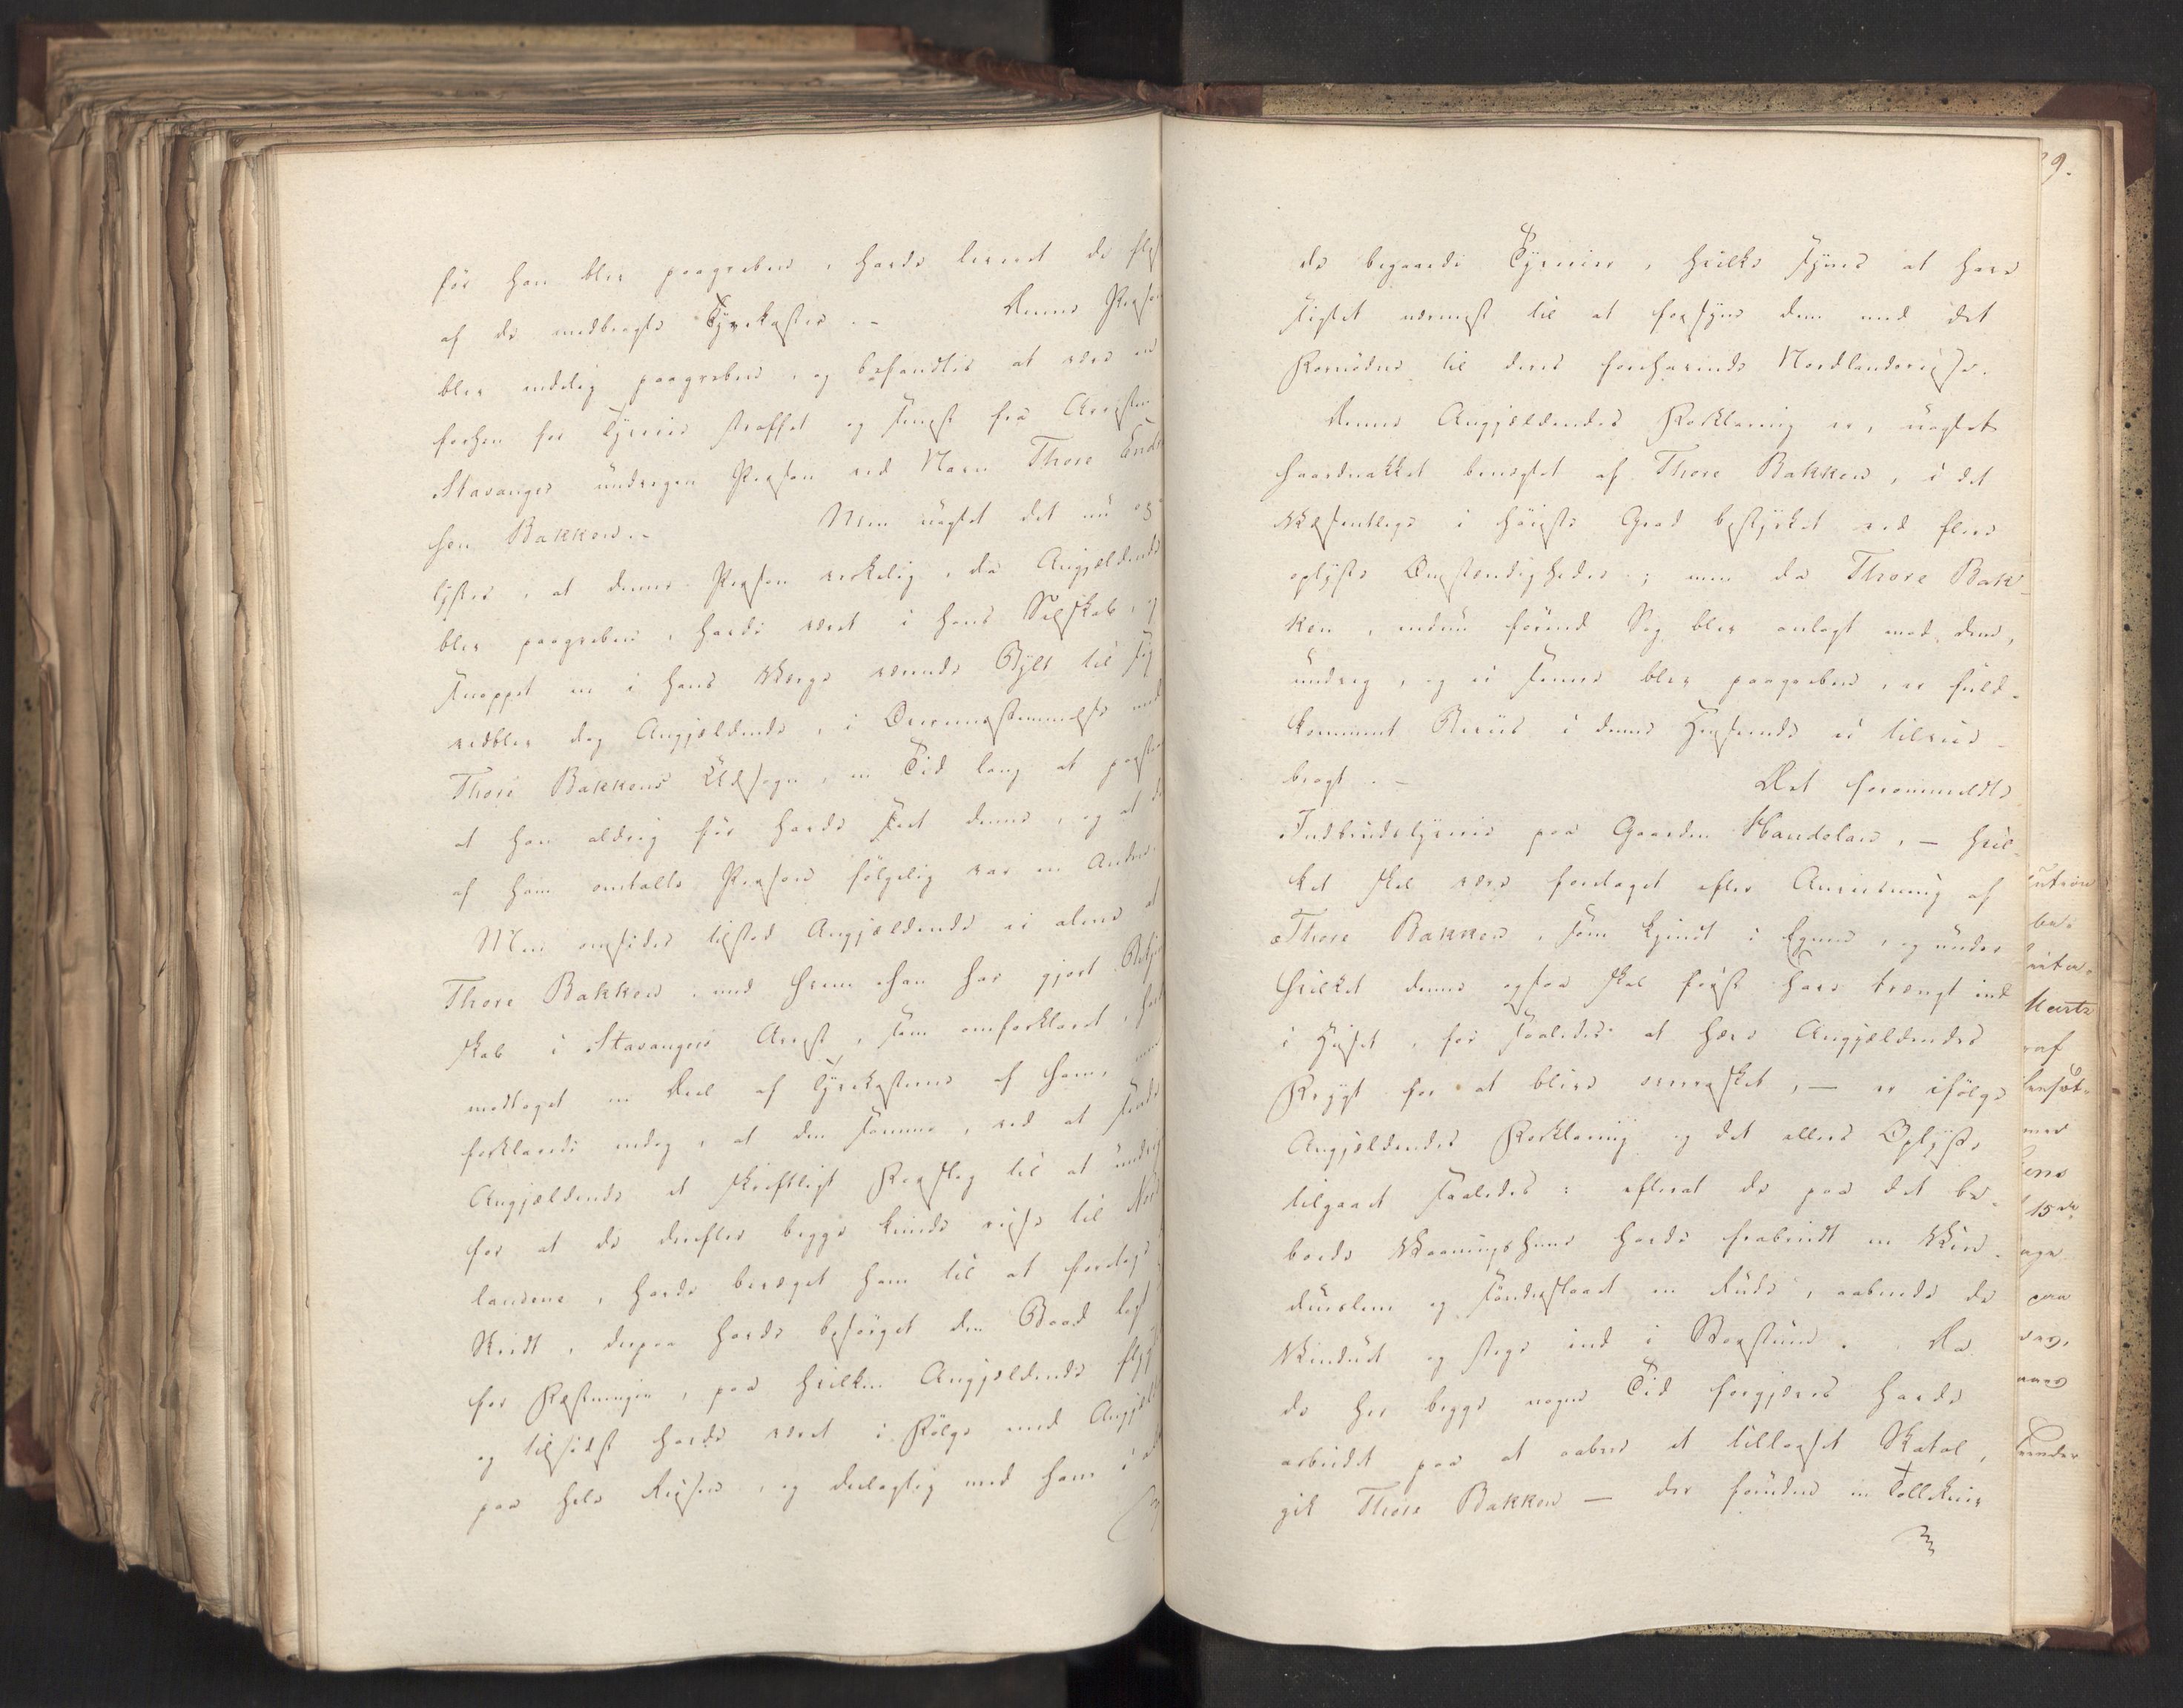 før han blev paagreben, havde leveret de flest
af de medbragte Tyvekoster. – Denne Person
blev endelig paagreben, og befandtes at være en
forhen for Tyverie straffet og senest fra Arresten i
Stavanger undvegen Person ved Navn Thore Endre
sen Bakken. – Men uagtet det nu op-
lystes, at denne Person virkelig, da Angjældende
blev paagreben, havde været i hans Selskab, og
snappet en i hans Værge værende Bylt til sig
vedblev dog Angjældende, i Overeensstemmelse med
Thore Bakkens Udsagn, en Tid lang at paastaae
at han aldrig før havde seet denne, og at de
af ham omtalte Person følgelig var en Anden.
Men omsider tilstod Angjældende ei alene at
Thore Bakken, med hvem han har gjort Bekjendt
skab i Stavangers Arrest, som omforklaret, havde
modtaget en Deel af Tyvekosterne af ham, men
forklarede endog, at den samme, ved at sende
Angjældende et skriftligt Forslag til at undvige
for at de derefter begge kunde reise til Nord
landene, havde bevæget ham til at foretage
Skridt, derpaa havde besørget den Baad lagt
for Fæstningen, paa hvilken Angjældende flygt
og tilsidst havde været i Følge med Angjæld
paa hele Reisen, og deelagtig med ham i al
29.
de begaaede Tyverier, hvilke synes at have
sigtet nærmest til at forsyne dem med det
Fornødne til deres forehavende Nordlandsreise.
Denne Angjældendes Forklaring er, uagtet
haardnakket benegtet af Thore Bakken, i det
Væsentlige i høieste Grad bestyrket ved flere
oplyste Omstændigheder; men da Thore Bak-
ken, endnu førend Sag blev anlagt mod ham,
undveg, og ei senere blev paagreben, er fuld-
komment Beviis i denne Henseende ei tilveie-
bragt. – Det forommeldte
Indbrudstyverie paa Gaarden Handeland, – hvil-
ket skal være foretaget efter Anviisning af
Thore Bakken, som kjendt i Egnen, og under
hvilket denne ogsaa skal først have trængt ind
i Huset, for saaledes at hæve Angjældendes
Frygt for at blive overrasket, – er ifølge
Angjældendes Forklaring og det ellers Oplyste
tilgaaet saaledes: efterat de paa det be-
boede Vaaningshuus havde frabrudt en Vin-
dueslem og sønderslaaet en Rude, aabnede de
Vinduet og stege ind i Borstuen. Da
de her begge nogen Tid forgjæves havde
arbeidet paa at aabne et tillaaset Skatol,
gik Thore Bakken – der fandtes en Tollekniv
Martz
15de
paa